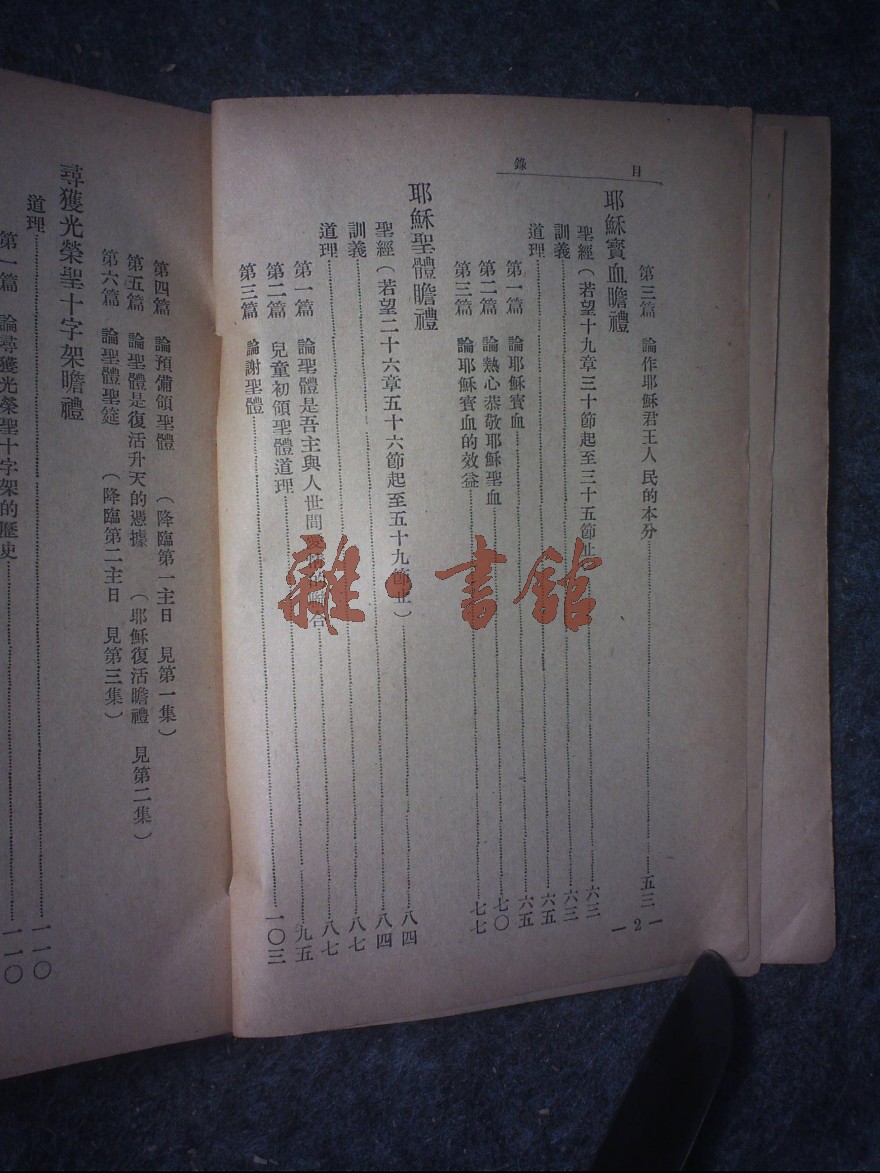 目錄
第三篇 論作耶穌君王人民的本分 五三
耶穌寶血瞻禮
聖經（若望十九章三十節起至三十五節止 六三
訓義 六三
道理 六五
第一篇 論耶穌寶血 六五
第二篇 論熱心恭敬耶穌聖血 七〇
第三篇 論耶穌寶血的效益 七七
耶穌聖體瞻禮
聖經（若望二十六章五十六節起至五十九節止） 八四
訓義 八四
道理 八七
第一篇 論聖體是吾主與人世間 合 八七
第二篇 兒童初領聖體道理 九五
第三篇 論謝聖體 一〇三
— 2 —
第四篇 論預備領聖體 （降臨第一主日 見第一集）
第五篇 論聖體是復活升天的憑據 （耶穌復活瞻禮 見第二集）
第六篇 論聖體聖筵 （降臨第二主日 見第三集）
尋獲光榮聖十字架瞻禮
道理 一一〇
第一篇 論尋獲光榮聖十字架的歷史 一一〇
雜·書館